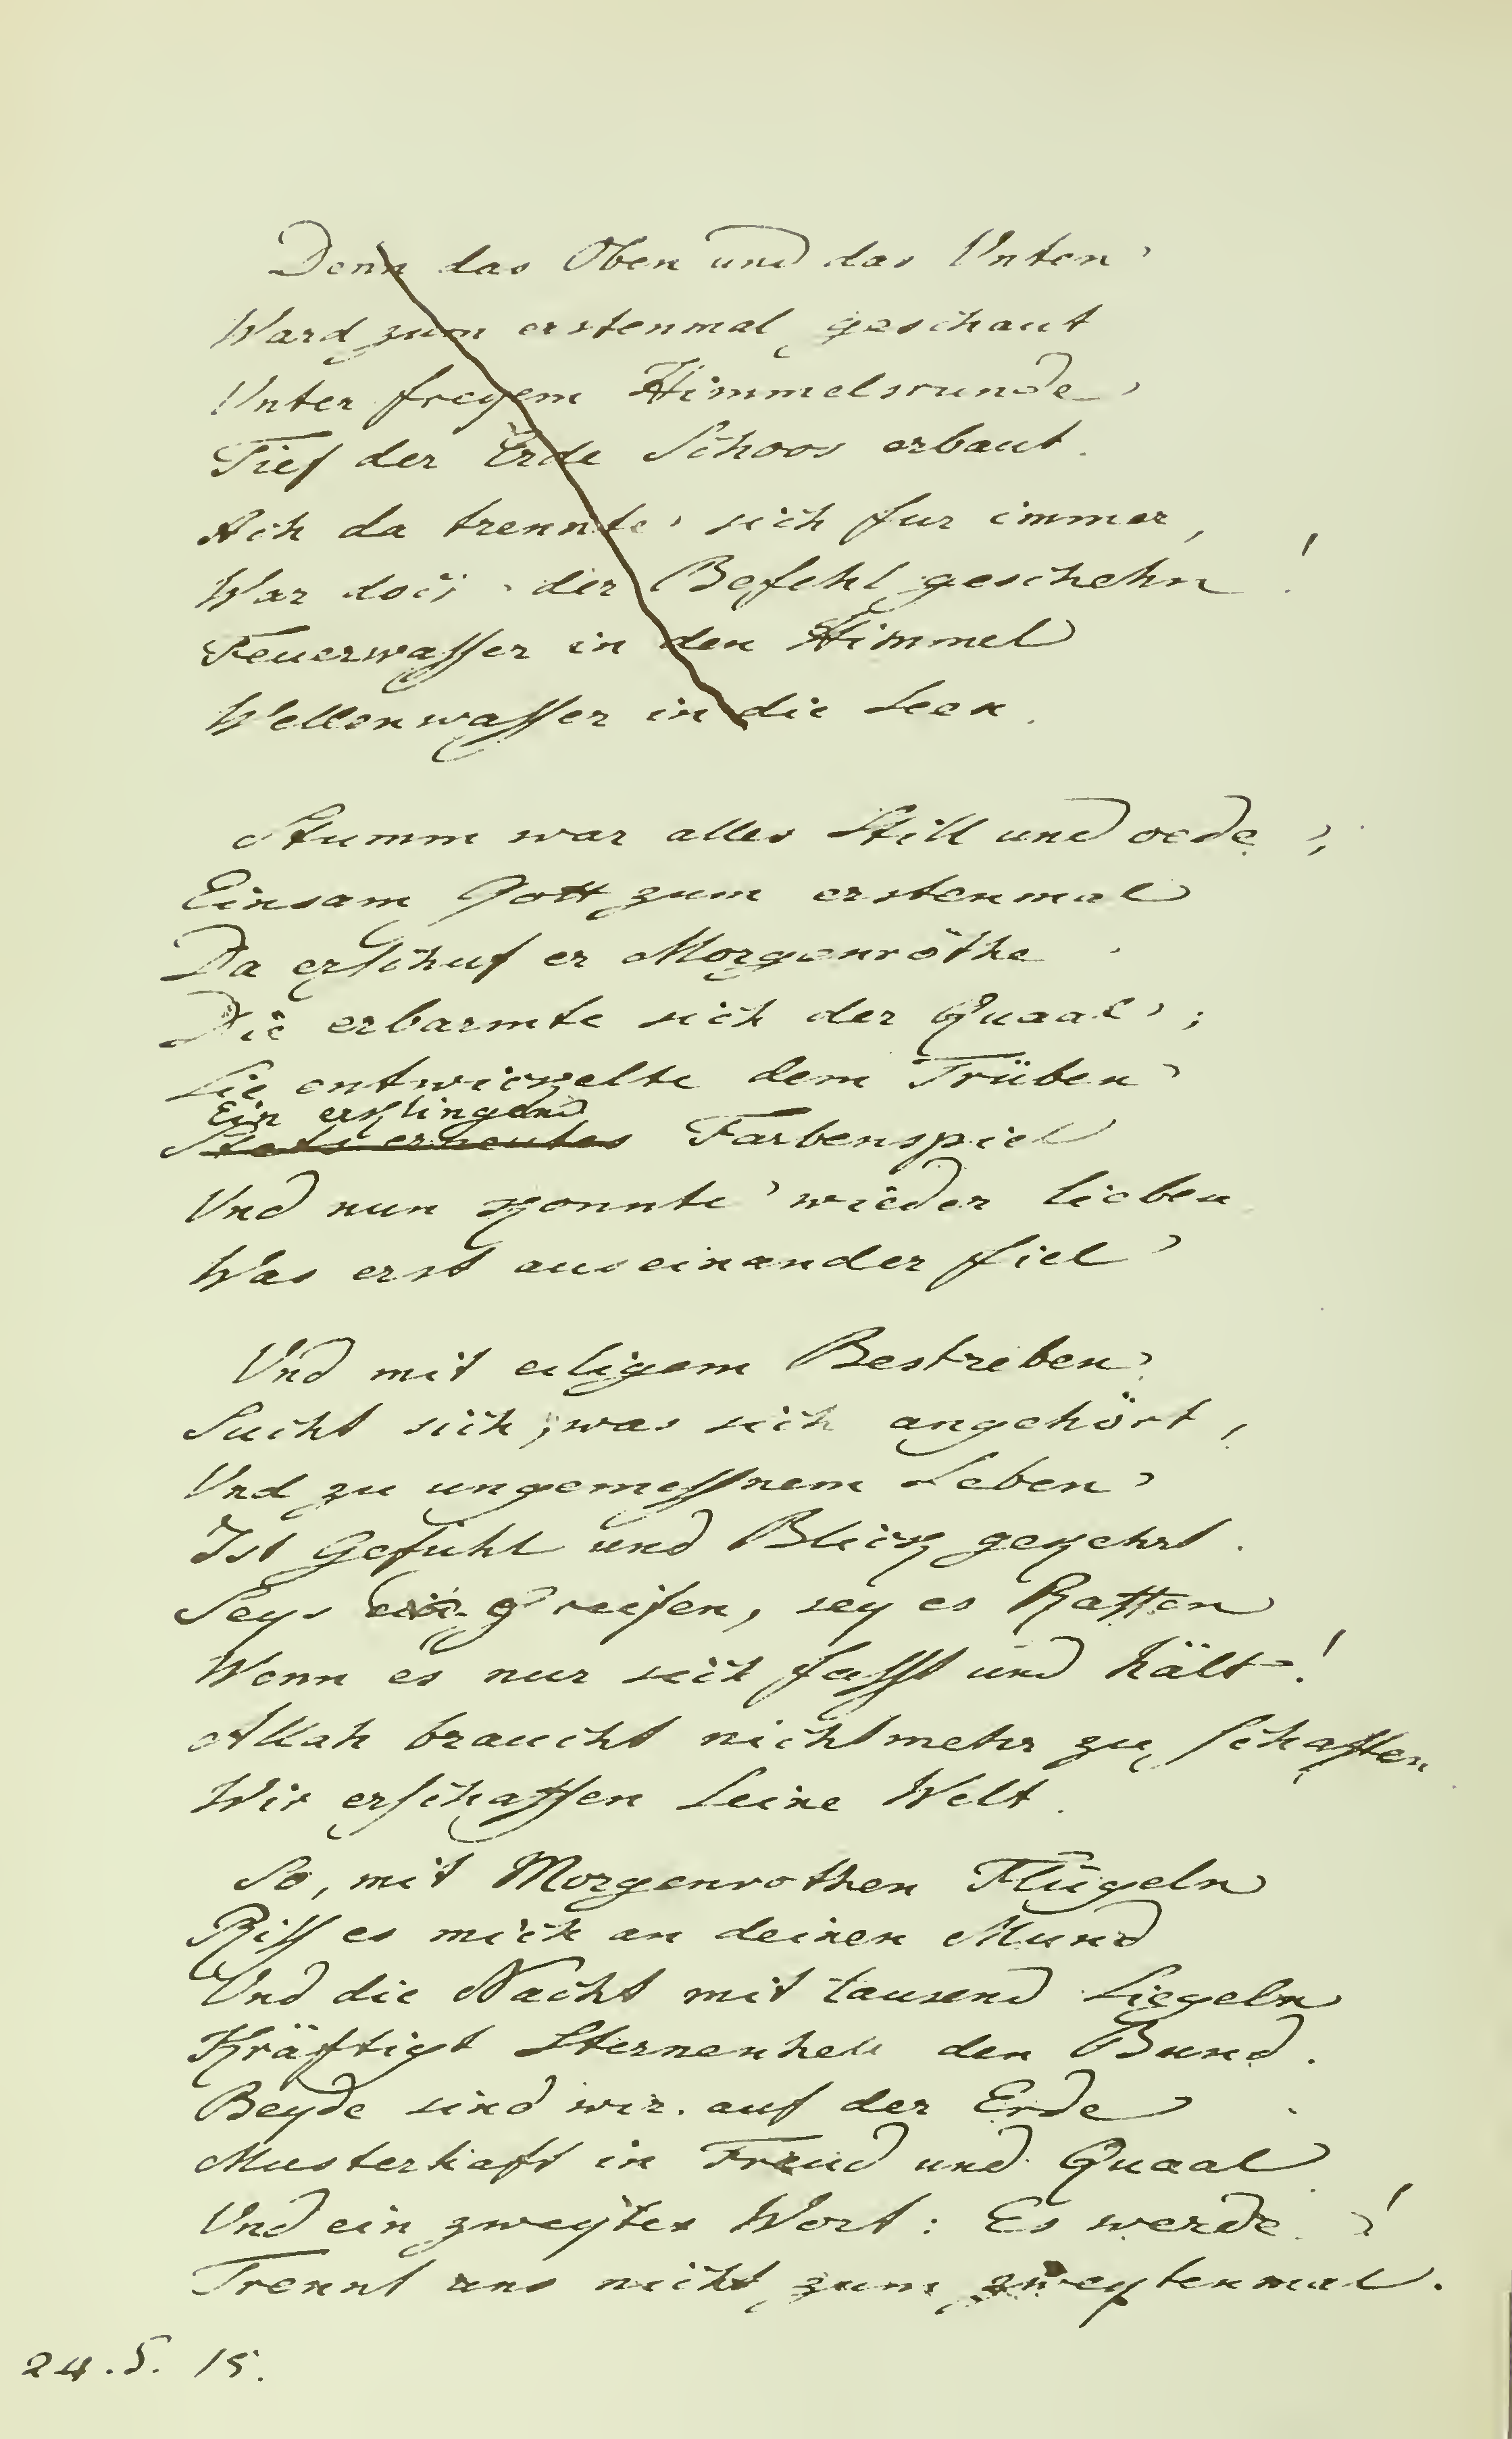 Denn das Oben und das Unten
Ward zum erstenmal geschaut
Unter freyem Himmelsrunde
Tief der Erde Schoos erbaut.
Ach da trennte sich fur immer,
War doch der Befehl geschehn!
Feuerwasser in den Himmel
Wellenwasser in die Seen.
Stumm war alles still und oede,
Einsam Gott zum erstenmal
Da erschuf er Morgenröthe
Die erbarmte sich der Quaal;
Sie entwickelte dem Trüben
Ein erklingend
Stets erneutes Farbenspiel
Und nun konnte wieder lieben
Was erst auseinander fiel
Und mit eiligem Bestreben
Sucht sich, was sich angehört,
Und zu ungemessnem Leben
Ist Gefuhl und Blick gekehrt.
Seys greifen, sey es Raffen
Wenn es nur sich fasst und hält!
Allah braucht nicht mehr zu schaffen
Wir erschaffen seine Welt.
So, mit Morgenrothen Flügeln
Riss es mich an deinen Mund
Und die Nacht mit tausend Siegeln
Kräftigt Sternenhell den Bund.
Beyde sind wir auf der Erde
Musterhaft in Freud und Quaal
Und ein zweytes Wort: Es werde!
Trennt uns nicht zum zweytenmal.
24.5.15.